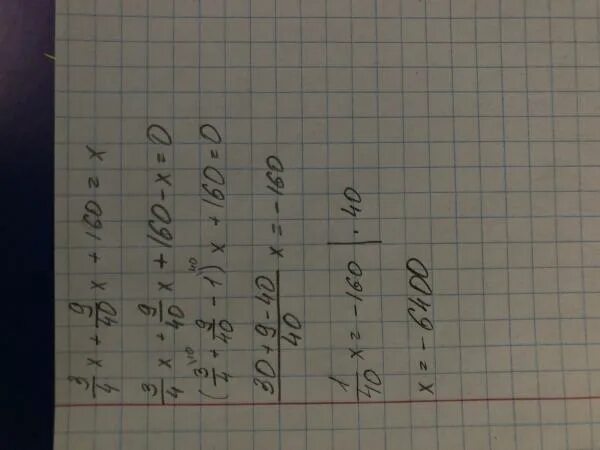 3/4 x + 9/40 x + 160 = x
3/4 x + 9/40 x + 160 - x = 0
(3/4 \10 + 9/40 - 1 \40) x + 160 = 0
30 + 9 - 40 / 40 x = -160
1/40 x = -160 | · 40
x = -6400